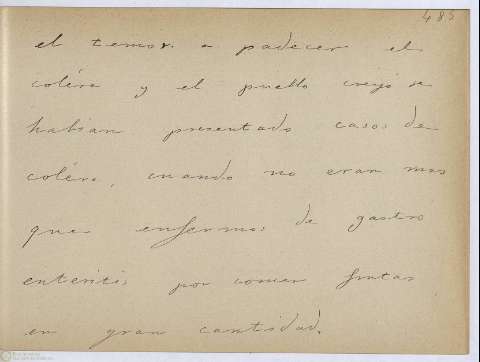 485
el temor a padecer el
colera y el pueblo creyó se
habian presentado casos de
colera, cuando no eran mas
que enfermos de gastro
enteritis por comer frutas
en gran cantidad.